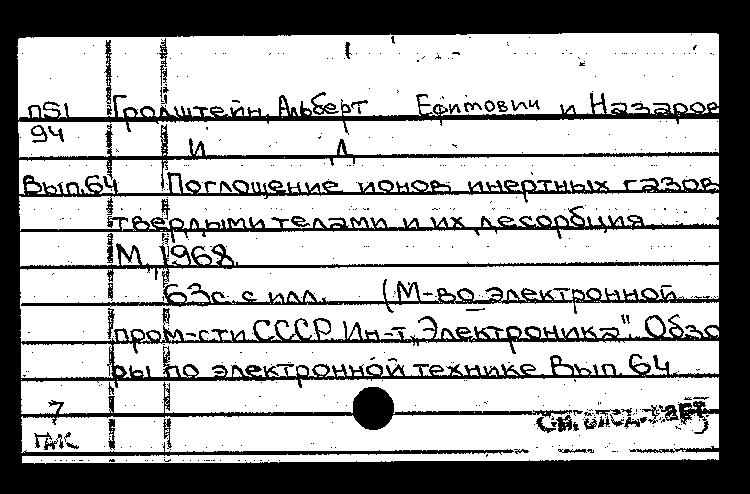 п51 Гролштейн, Альберт Ефимович и Назаров
94
И Д
Вып.64 Поглощение ионов инертных газов
твердыми телами и их десорбция.
М., 1968.
63с. с илл. (М-во электронной
пром-сти СССР. Ин-т „Электроника". Обзо
ры по электронной технике. Вып. 64
7
ГАК
См. след. карт